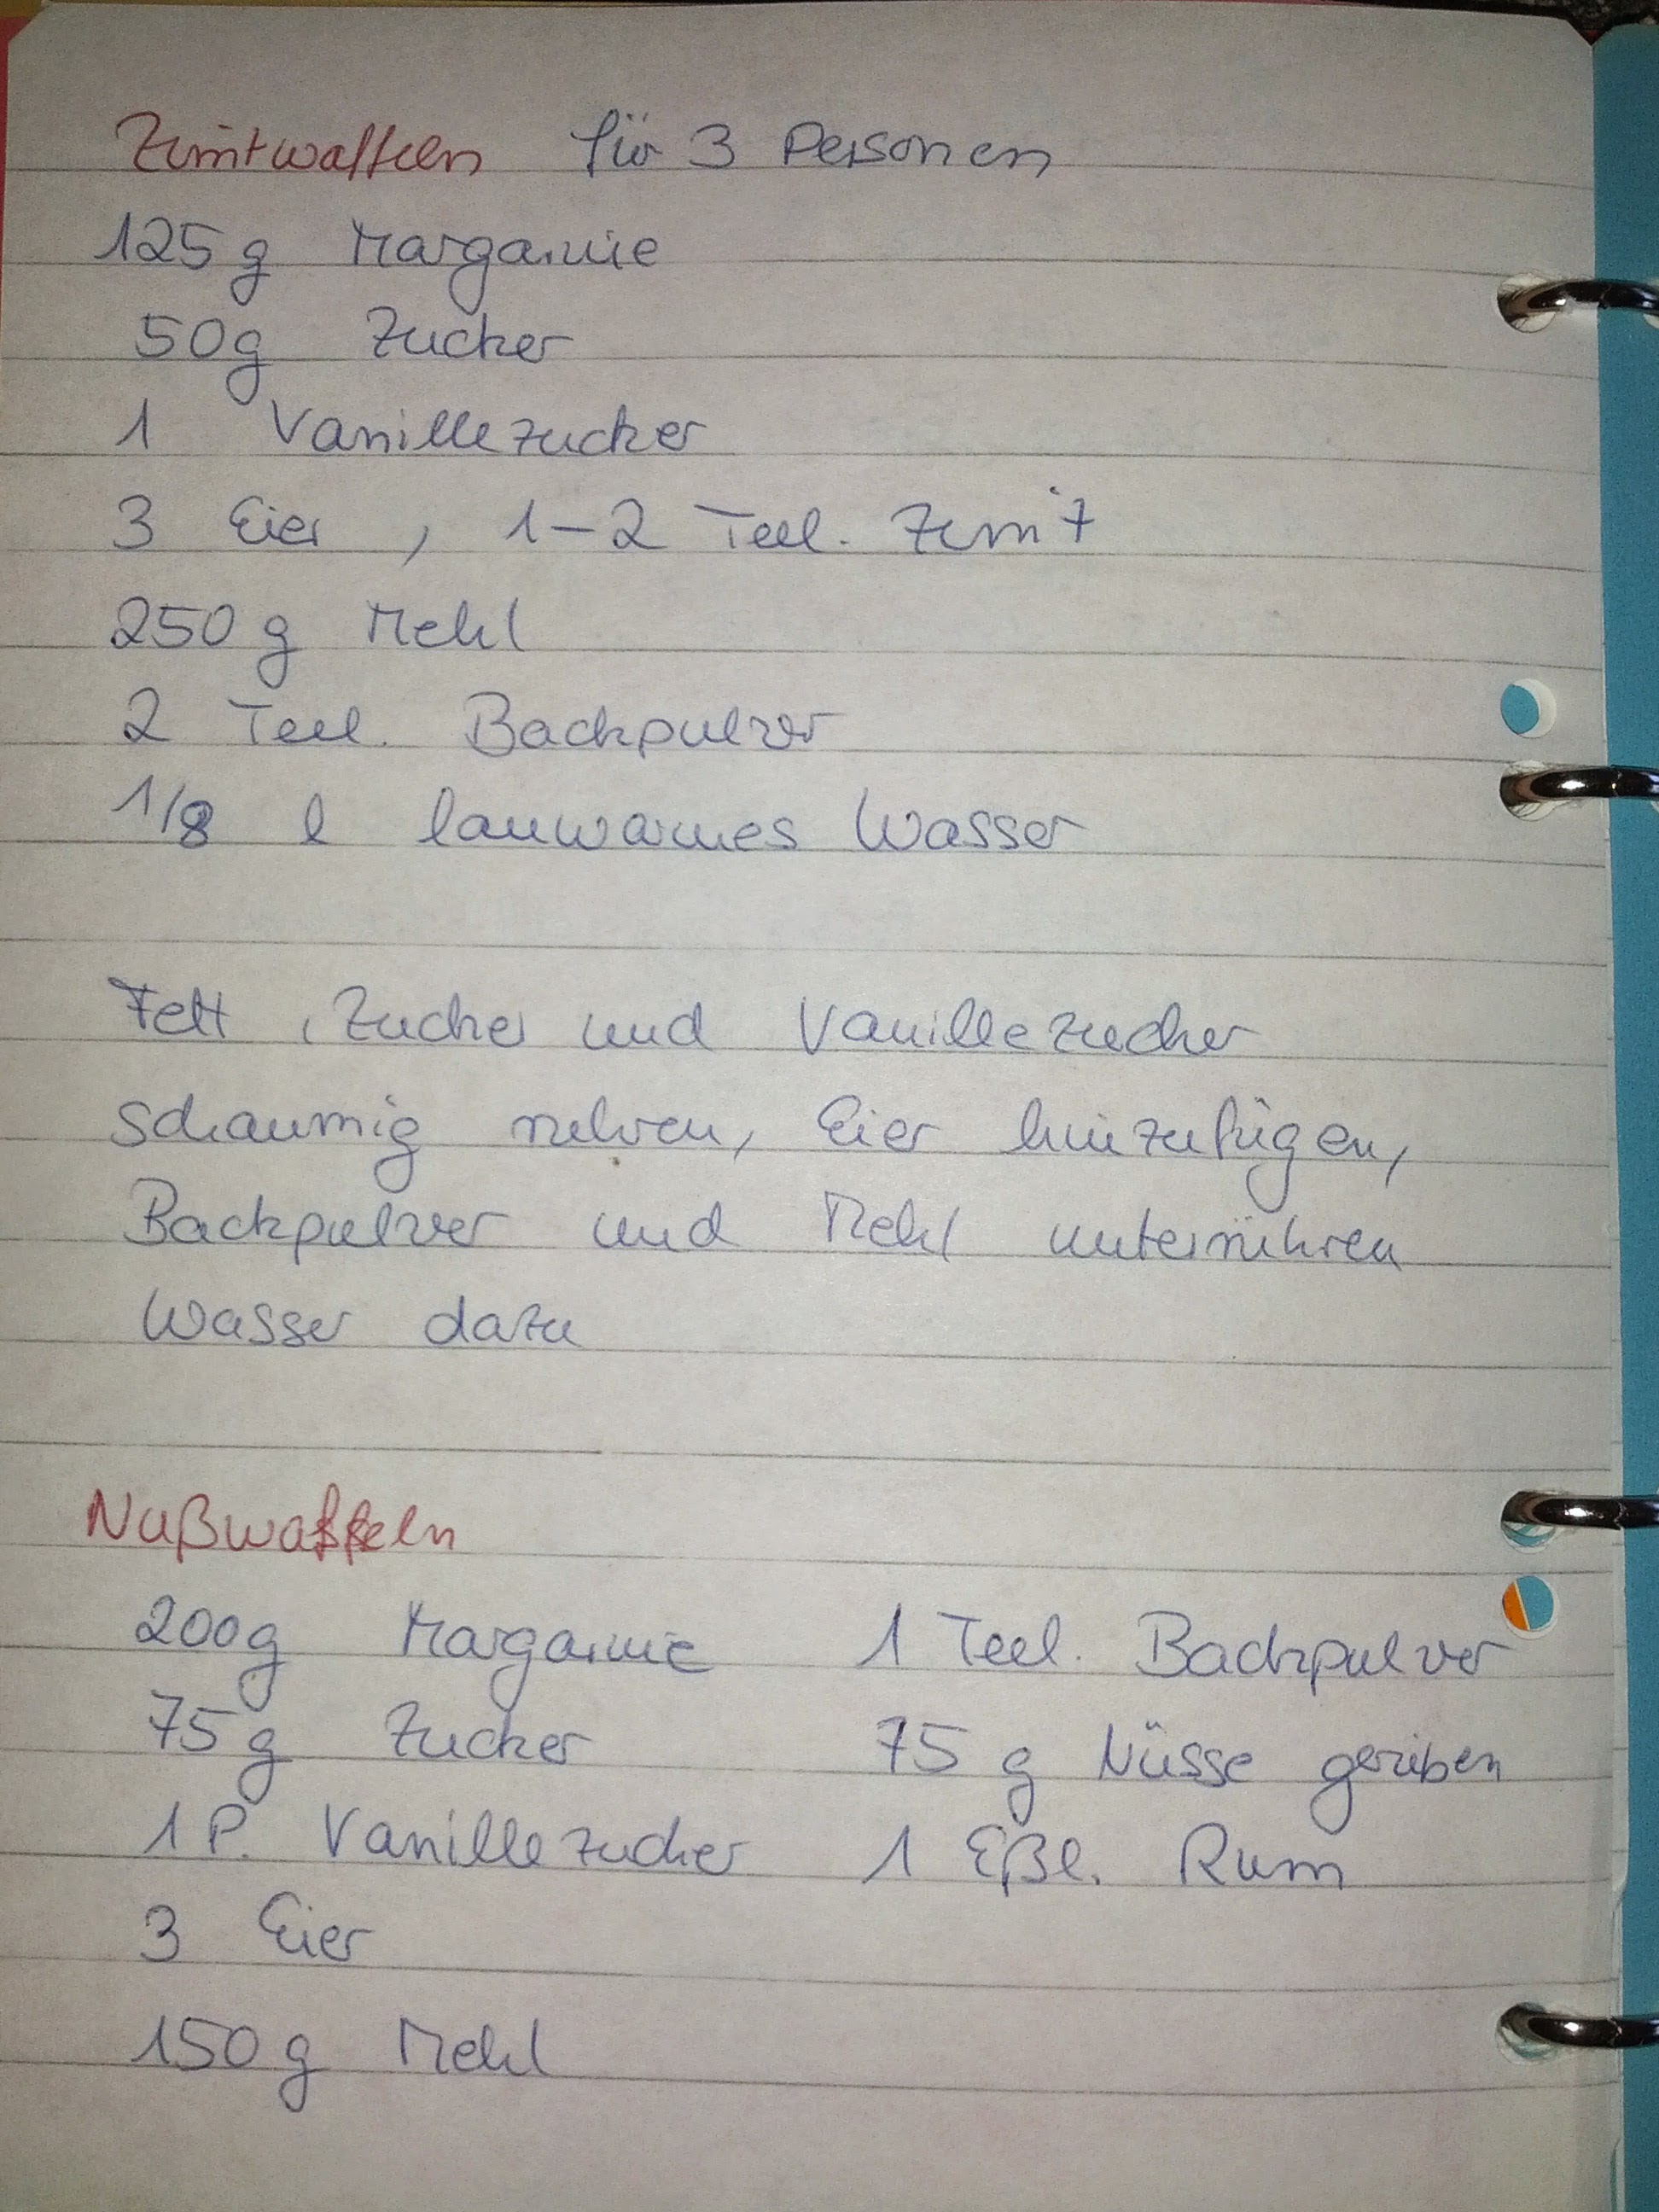 Zimtwaffeln für 3 Personen
125 g Margarine
50g Zucker
1 Vanillezucker
3 Eier, 1-2 Teel. Zimt
250 g Mehl
2 Teel. Backpulver
1/8 l lauwarmes Wasser
Fett, Zucker und Vanillezucker
schaumig rühren, Eier hinzufügen,
Backpulver und Mehl unterrühren
Wasser dazu
Nußwaffeln
200g Margarine 1 Teel. Backpulver
75g Zucker 75 g Nüsse gerieben
1 P. Vanillezucker 1 Eßl. Rum
3 Eier
150 g Mehl